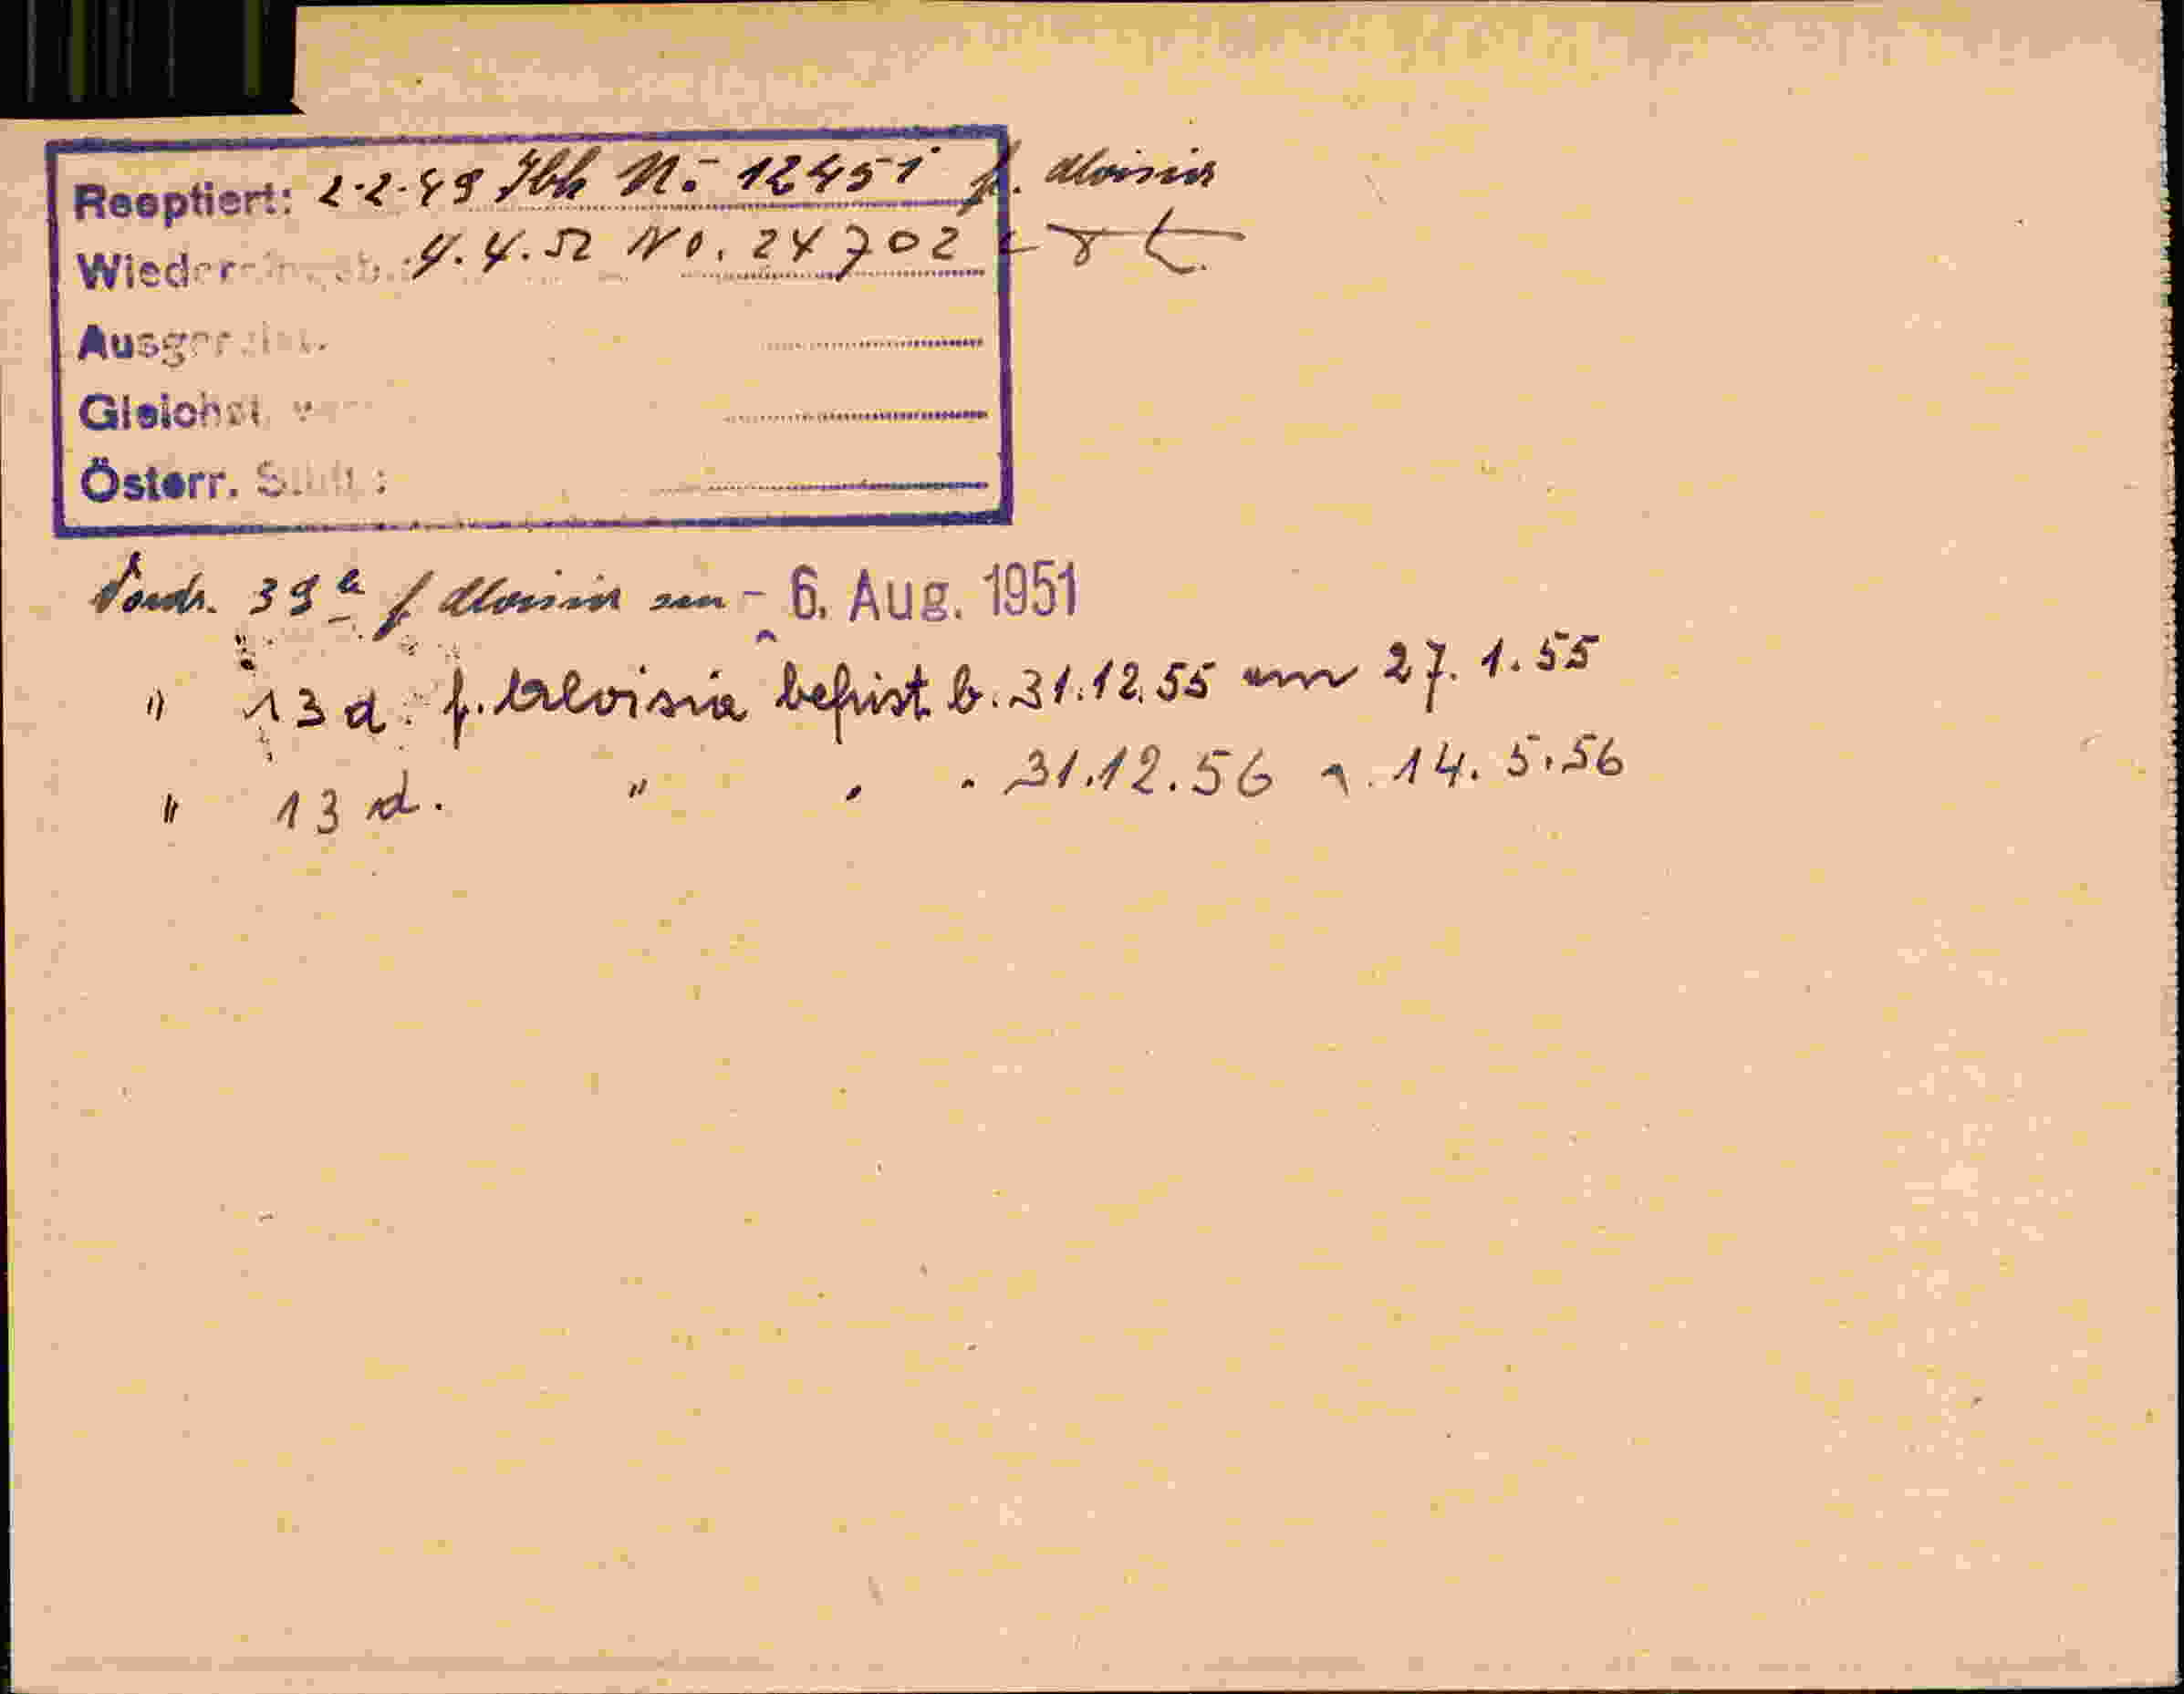 Reoptiert: 2.2.49 Jbk No 12451 f. Aloisia
4.4.52 No. 24702
Österr.
39a f Aloisia am - 6. Aug. 1951
" 13 d. f. Aloisia befrist b. 31.12.55 am 27. 1. 55
" 13 d. " " " 31.12.56 a. 14. 5. 56